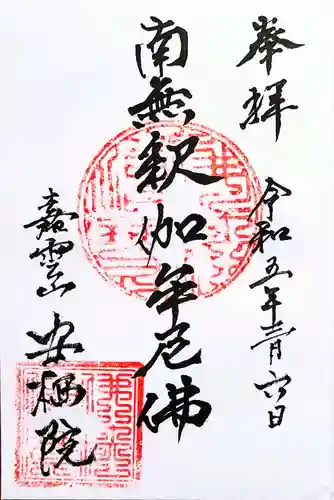 奉拝
令和五年三月六日
南無釈迦牟尼佛
嘉雲山
安栖院